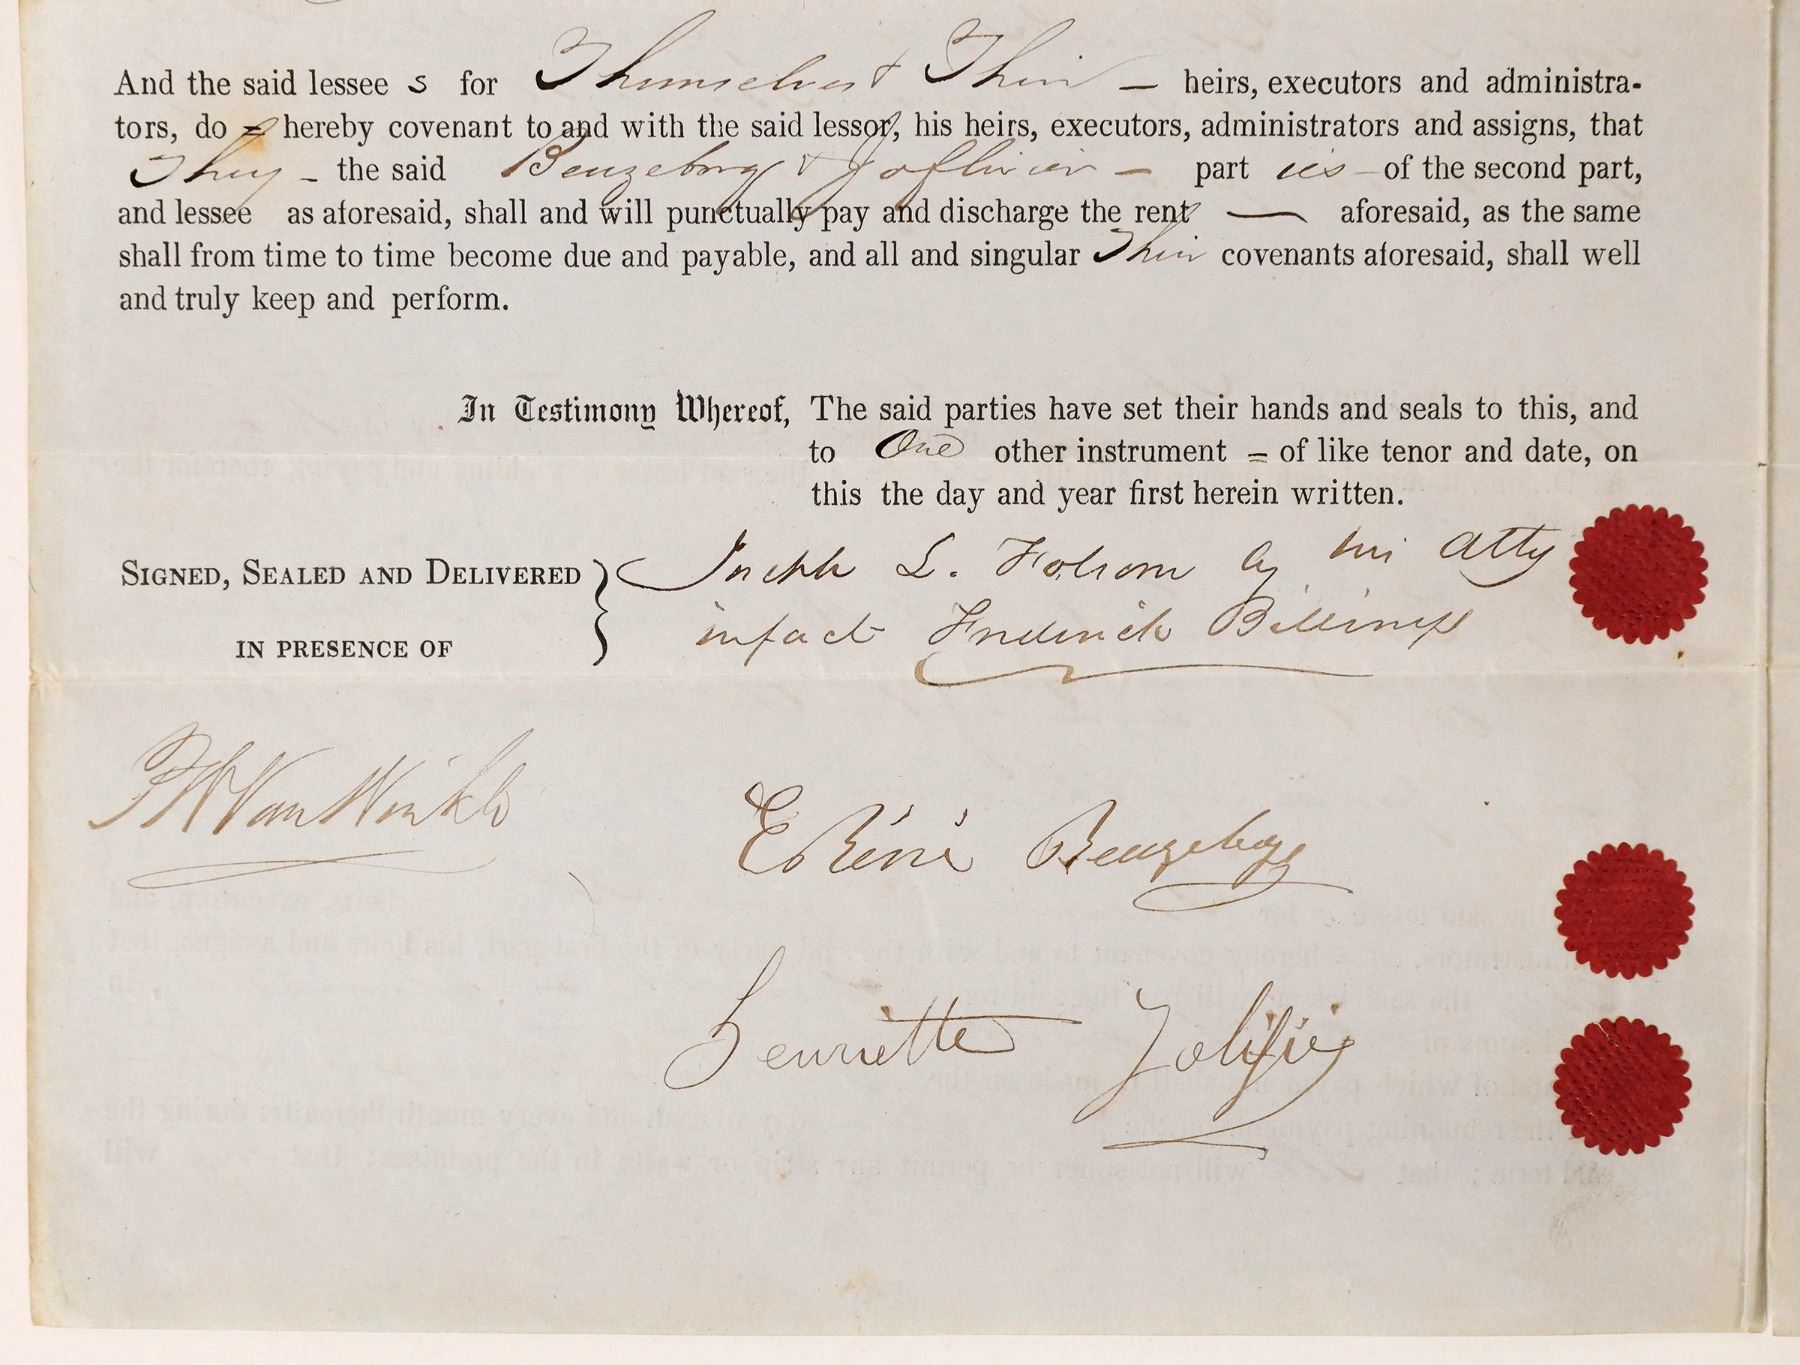 And the said lessee s for Themselves & Their — heirs, executors and administra-
tors, do = hereby covenant to and with the said lessor, his heirs, executors, administrators and assigns, that
They - the said Beuzeborg & — part ies - of the second part,
and lessee as aforesaid, shall and will punctually pay and discharge the rent — aforesaid, as the same
shall from time to time become due and payable, and all and singular Their covenants aforesaid, shall well
and truly keep and perform.
In Testimony Whereof, The said parties have set their hands and seals to this, and
to One other instrument = of like tenor and date, on
this the day and year first herein written.
SIGNED, SEALED AND DELIVERED
IN PRESENCE OF
Joseph L. Folsom by his atty
in fact Frederick Billings
Van Winkle
Beuzeborg
henriette